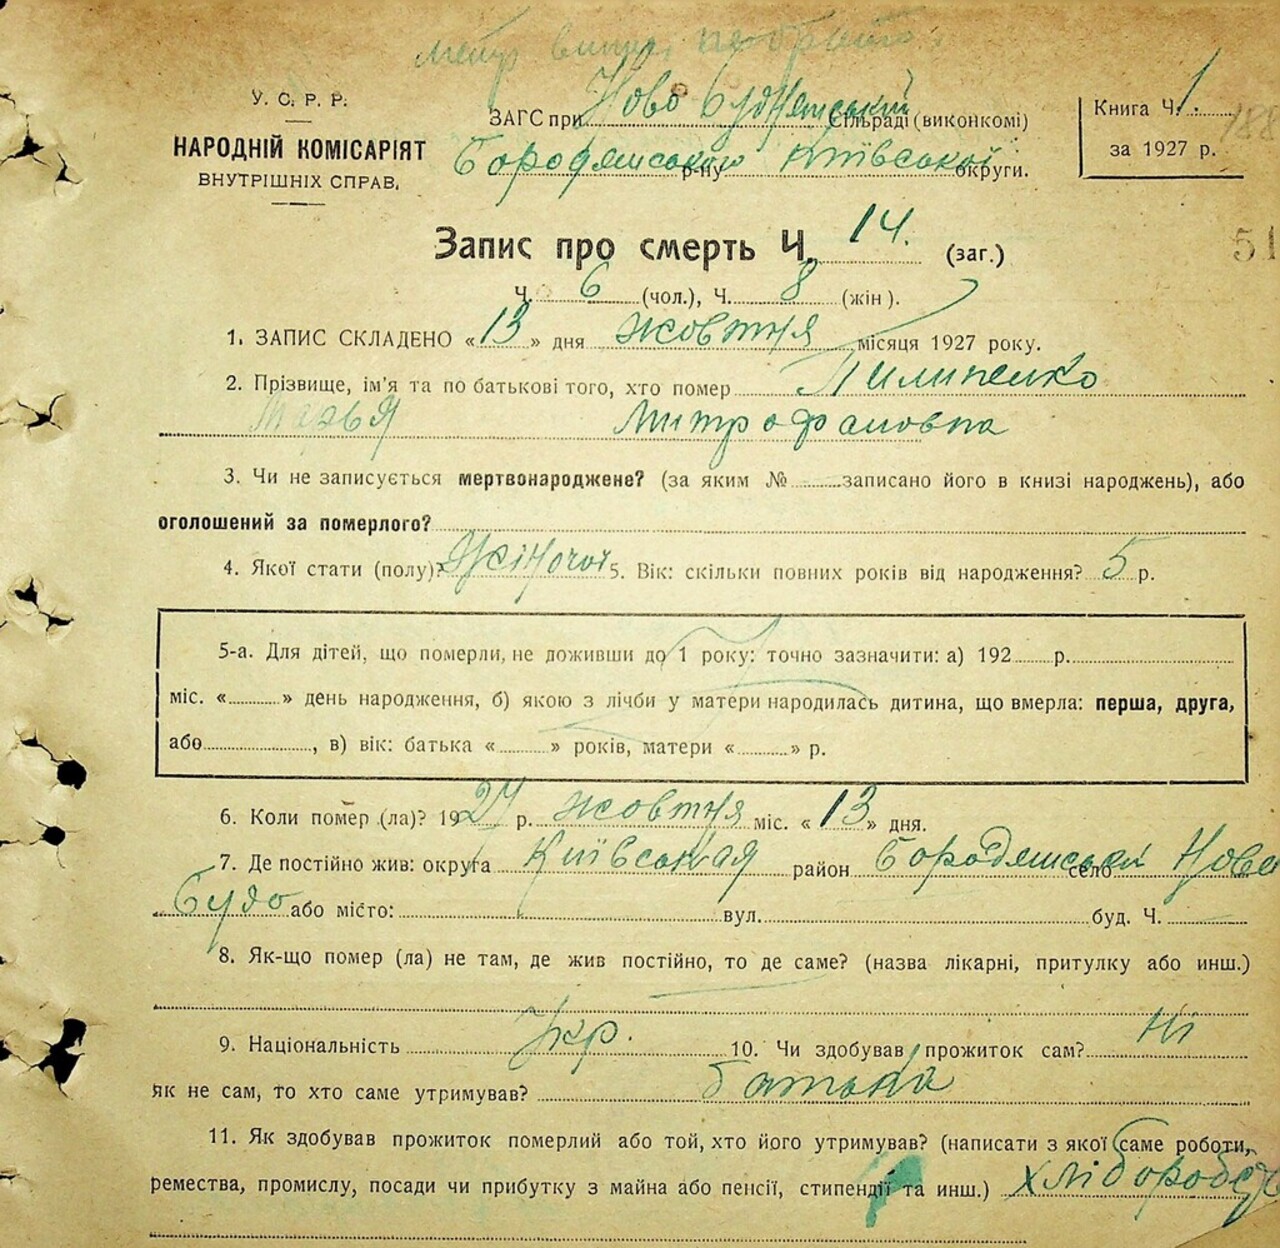 У. С. Р. Р.
НАРОДНІЙ КОМІСАРІЯТ
ВНУТРІШНІХ СПРАВ.
ЗАГС при Ново Буднянський Сільраді (виконкомі)
Бородянського р-ну Київської округи.
Книга Ч. 1.
за 1927 р.
188
51
Запис про смерть Ч. 14. (заг.)
Ч. 6 (чол.), Ч. 8 (жін).
1. ЗАПИС СКЛАДЕНО «13» дня жовтня місяця 1927 року.
2. Прізвище, ім'я та по батькові того, хто помер Пилипенко
Марья Митрофановна
3. Чи не записується мертвонароджене? (за яким № записано його в книзі народжень), або
оголошений за померлого?
4. Якої стати (полу)? Жіночої 5. Вік: скільки повних років від народження? 5 р.
5-а. Для дітей, що померли, не доживши до 1 року: точно зазначити: а) 192 р.
міс. « » день народження, б) якою з лічби у матери народилась дитина, що вмерла: перша, друга,
або , в) вік: батька « » років, матери « » р.
6. Коли помер (ла)? 1927 р. жовтня міс. «13» дня.
7. Де постійно жив: округа Київськая район Бородянський село Нова
Будо або місто: вул. буд. Ч.
8. Як-що помер (ла) не там, де жив постійно, то де саме? (назва лікарні, притулку або инш.)
9. Національність Укр. 10. Чи здобував прожиток сам? Ні
як не сам, то хто саме утримував? батька
11. Як здобував прожиток померлий або той, хто його утримував? (написати з якої саме роботи,
ремества, промислу, посади чи прибутку з майна або пенсії, стипендії та инш.)